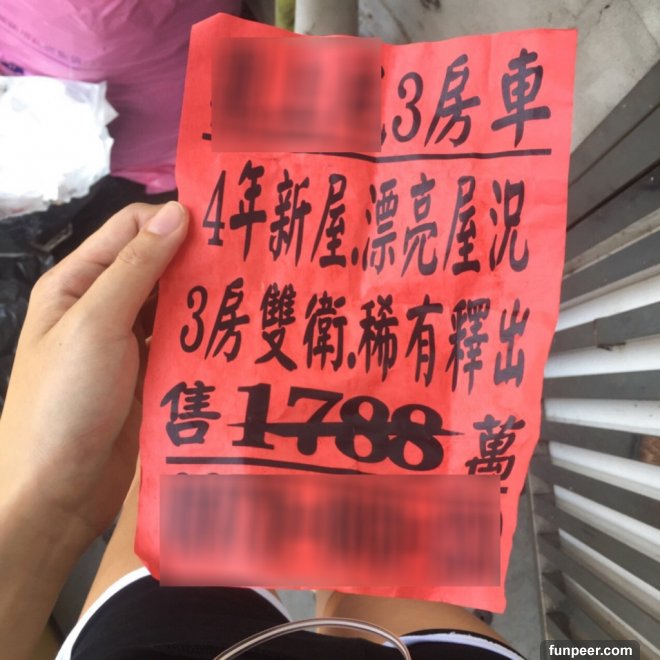 3房車
4年新屋.漂亮屋況
3房雙衛.稀有釋出
售1788萬
funpeer.com